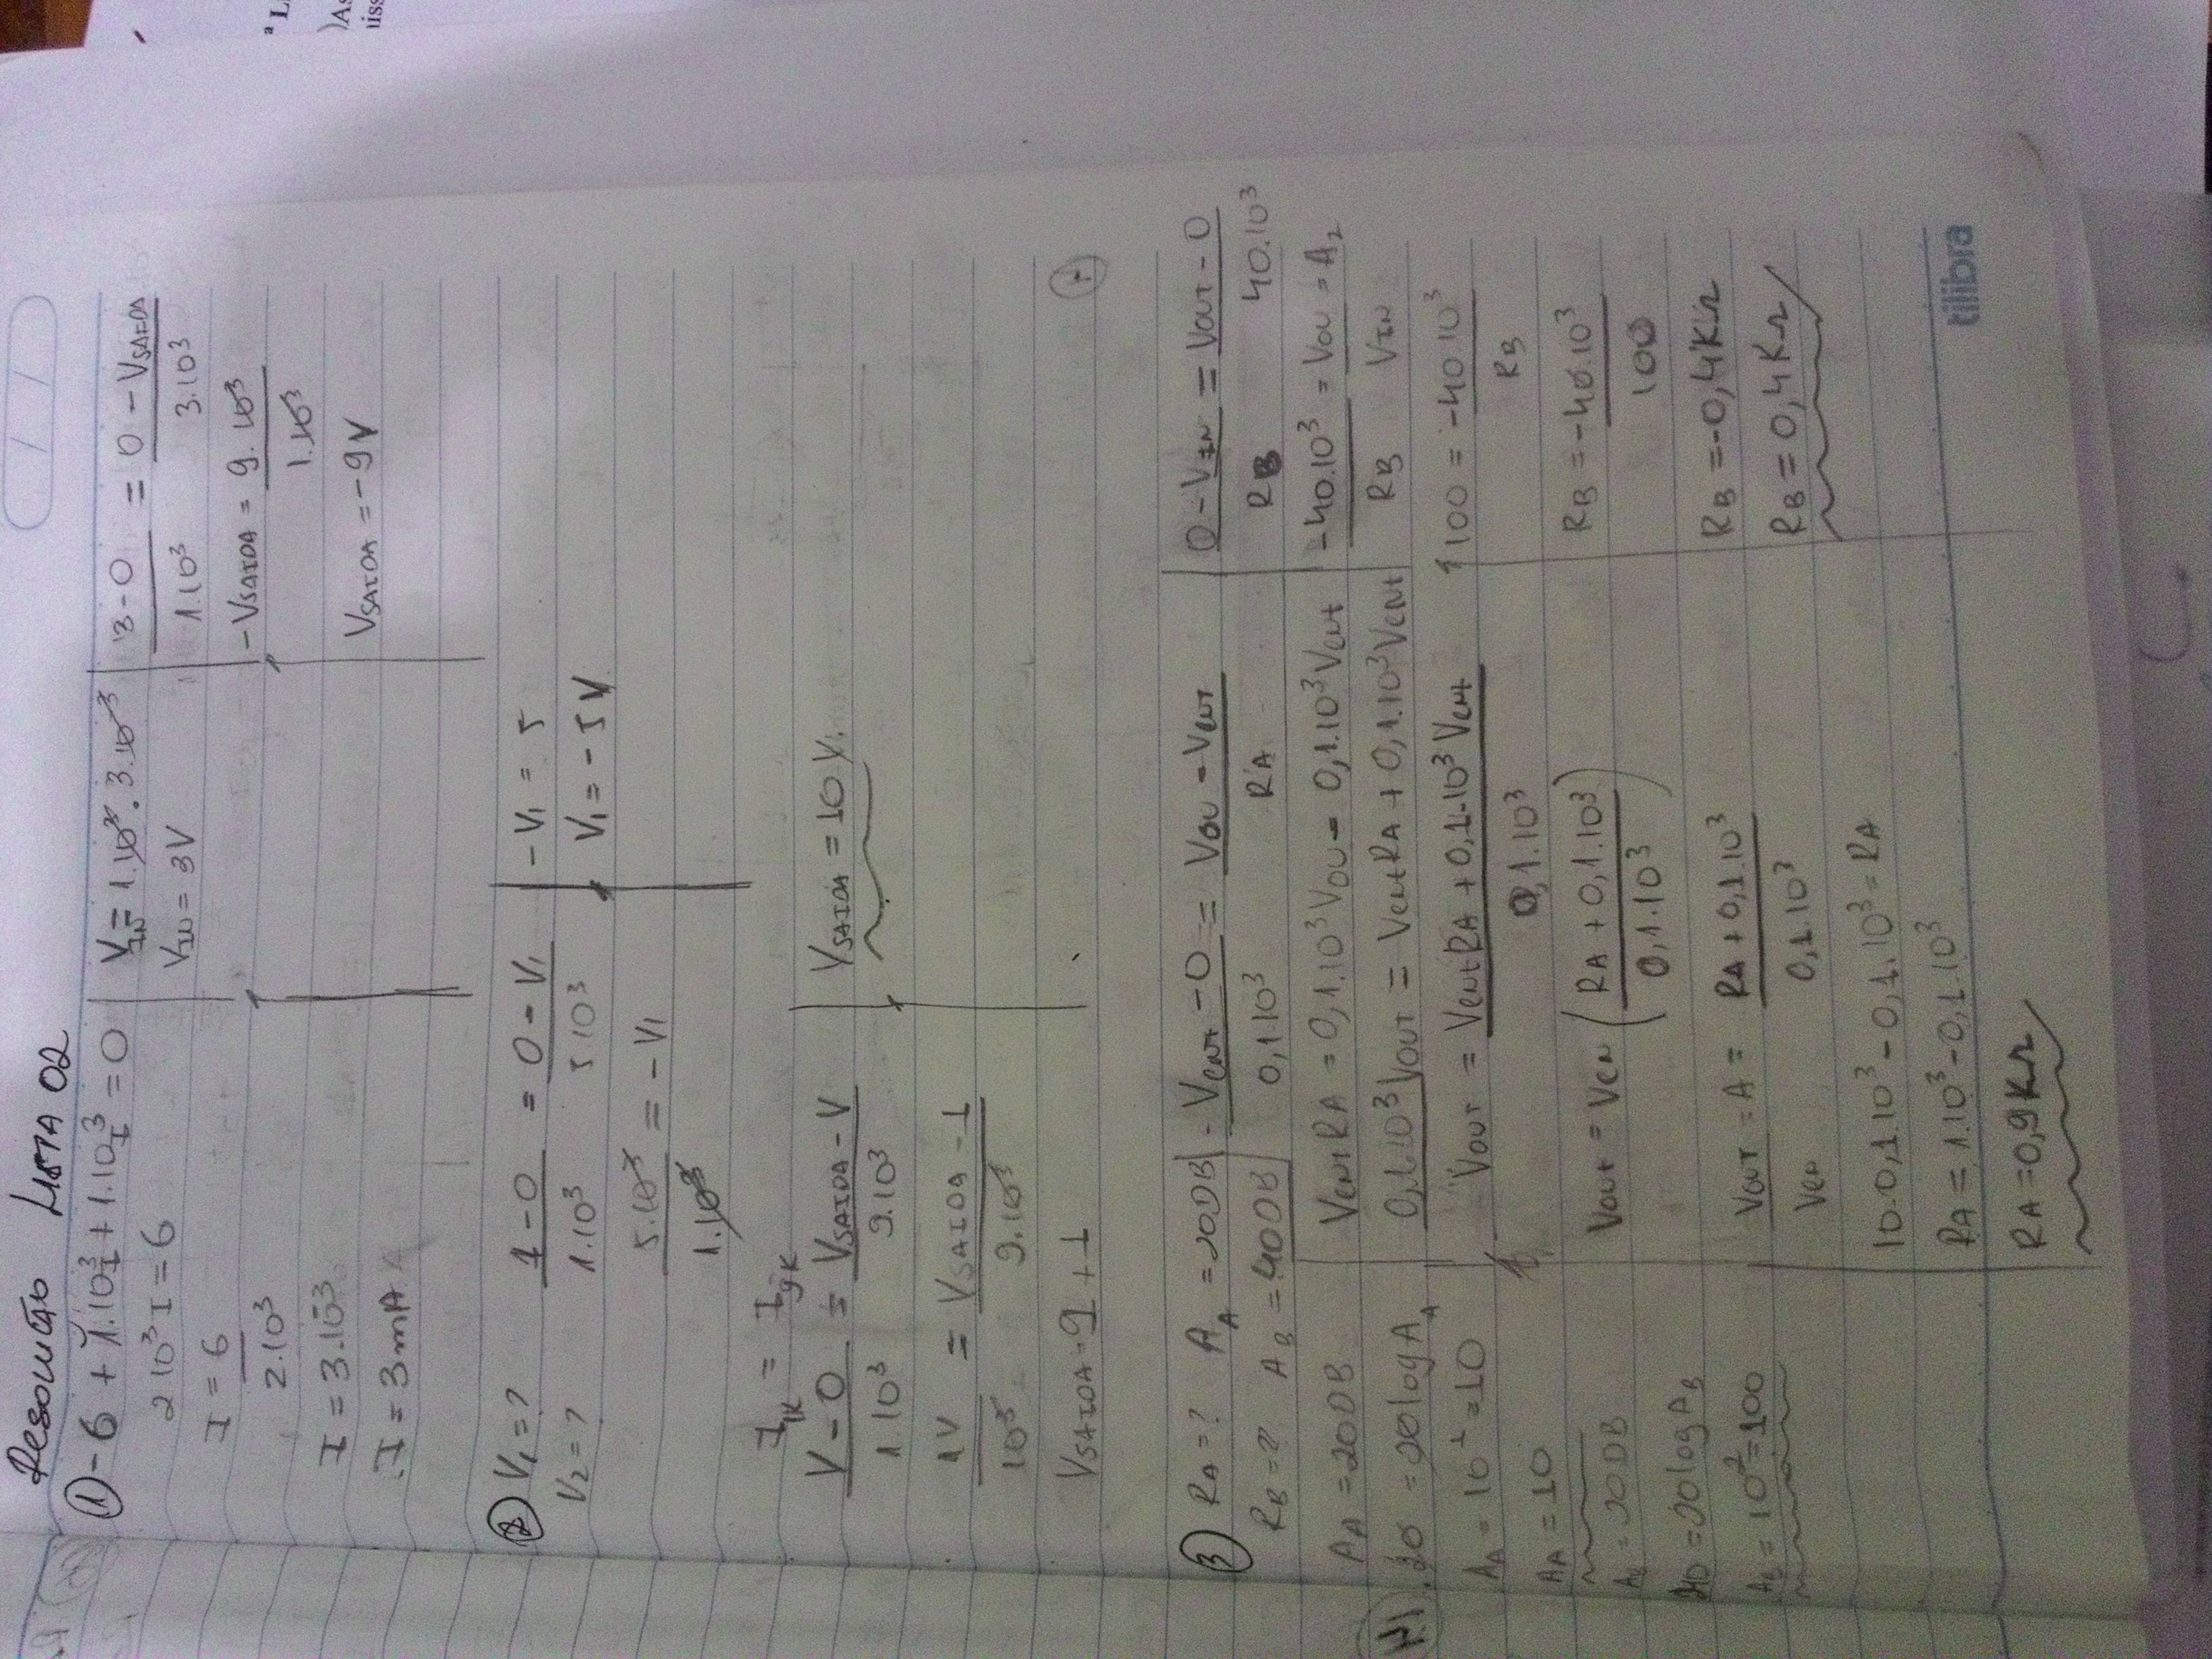 Resolução Lista 02
/ /
① -6 + 1.10³I + 1.10³I = 0
2 10³ I = 6
I = 6
2.10³
I = 3.10⁻³
I = 3mA
VIN = 1.10³ . 3.10⁻³
VIN = 3V
3 - 0 = 0 - VSAIDA
1.10³ 3.10³
-VSAIDA = 9.10³
1.10³
VSAIDA = -9V
② V1 = ?
V2 = ?
1 - 0 = 0 - V1
1.10³ 5 10³
5.10³ = - V1
1.10³
- V1 = 5
V1 = - 5V
I1K = I9K
V - 0 = VSAIDA - V
1 10³ 9.10³
1V = VSAIDA - 1
10³ 9.10³
VSAIDA = 9 + 1
VSAIDA = 10V.
③ RA = ? AA = 20DB
RB = ? AB = 40DB
AA = 20DB
20 = 20logAA
AA = 10¹ = 10
AA = 10
= 20DB
40 = 20logAB
AB = 10² = 100
- Vent - 0 = Vou - Vent
0,1.10³ RA
VentRA = 0,1.10³Vou - 0,1.10³Vent
0,1.10³Vout = VentRA + 0,1.10³Vent
Vout = VentRA + 0,1.10³Vent
0,1.10³
Vout = Ven ( RA + 0,1.10³ )
0,1.10³
Vout = A = RA + 0,1.10³
Ven 0,1.10³
10.0,1.10³ - 0,1.10³ = RA
RA = 1.10³ - 0,1.10³
RA = 0,9KΩ
0 - VIN = Vout - 0
RB 40.10³
-40.10³ = Vou = A2
RB VIN
100 = -40 10³
RB
RB = -40.10³
100
RB = -0,4KΩ
RB = 0,4KΩ
tilibra